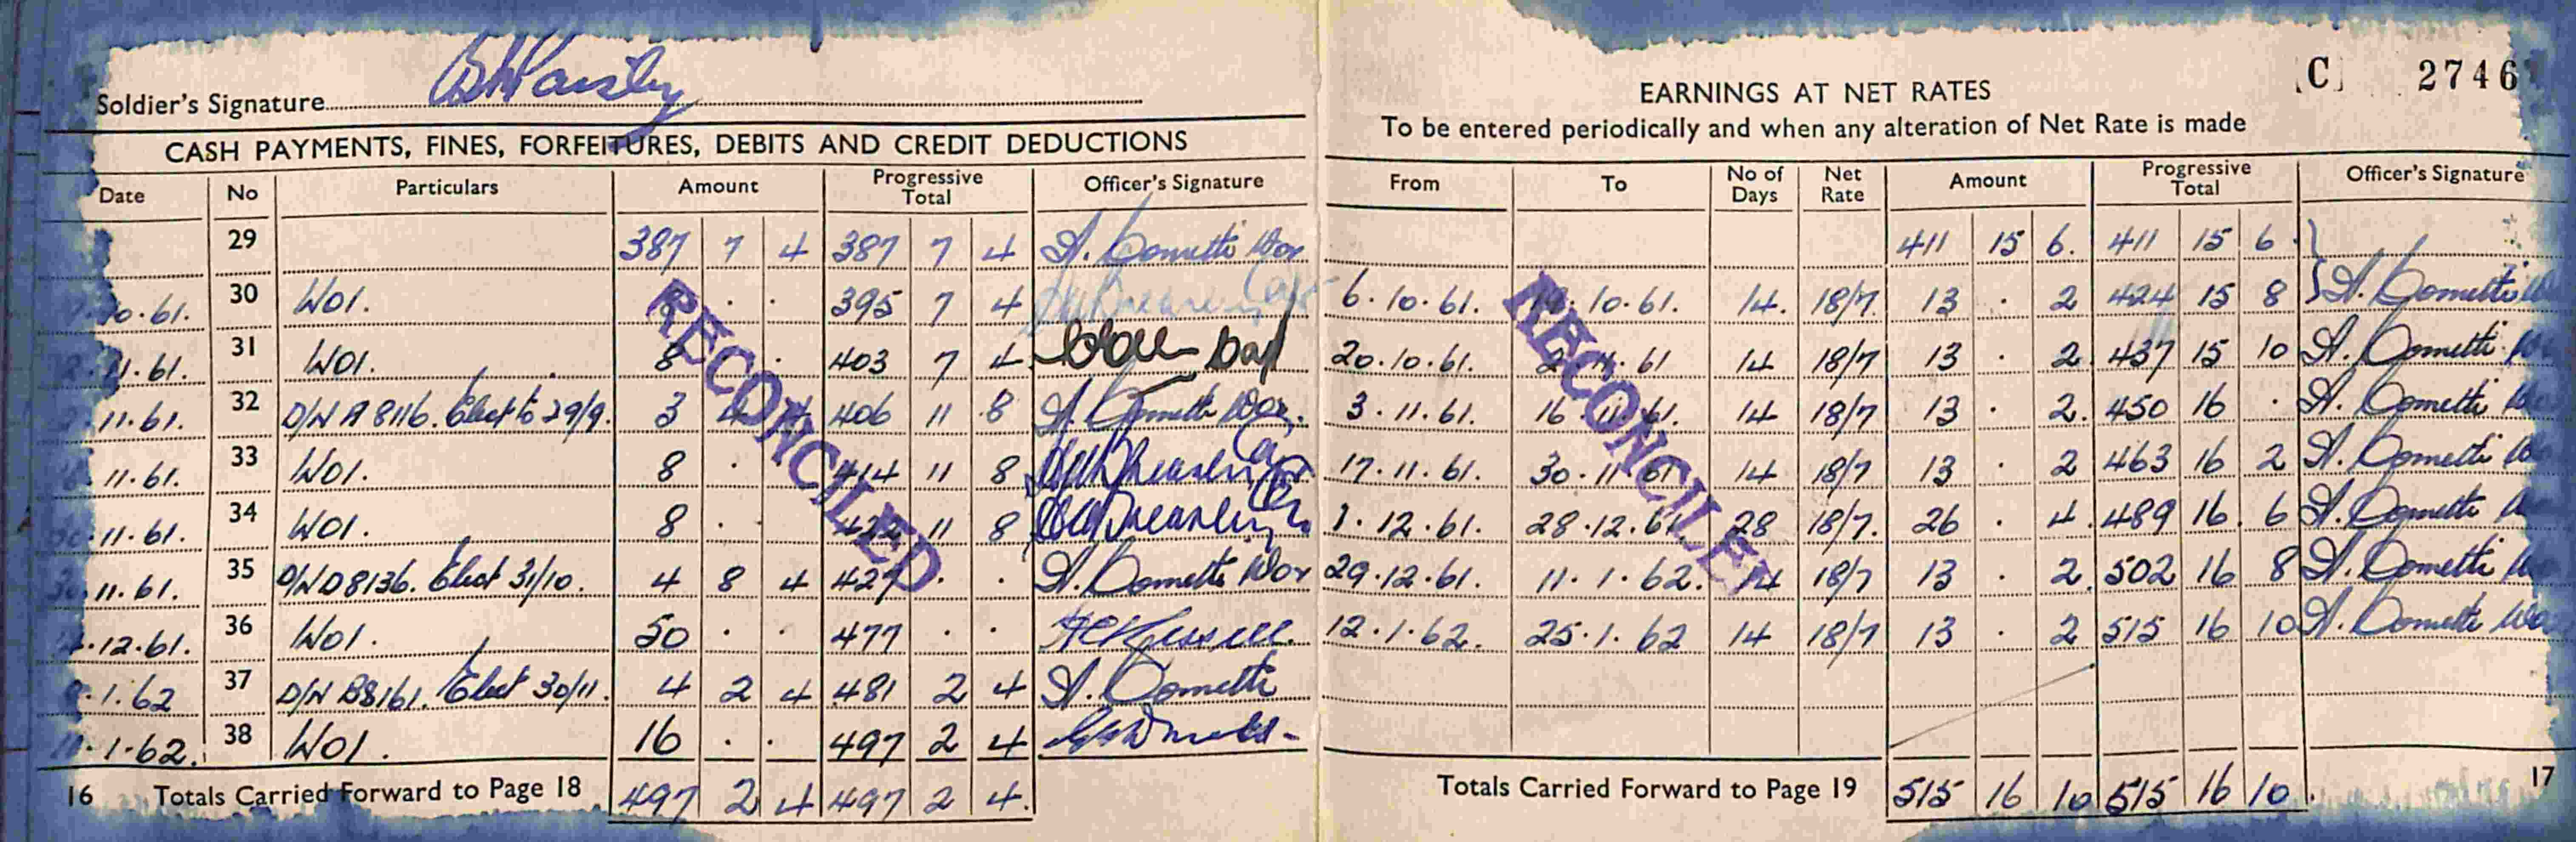 Soldier's Signature
CASH PAYMENTS, FINES, FORFEITURES, DEBITS AND CREDIT DEDUCTIONS
Date No Particulars Amount Progressive Total Officer's Signature
29 387 7 4 387 7 4 A. Cometti
10.61. 30 WO1. 8 . . 395 7 4
11.61. 31 WO1. 8 . 403 7 4
11.61. 32 D/N A8116. Elect to 29/9. 3 4 4 406 11 8 A. Cometti
11.61. 33 WO1. 8 . 414 11 8
11.61. 34 WO1. 8 . . 422 11 8
11.61. 35 D/N D8136. Elect 31/10. 4 8 4 427 . . A. Cometti
.12.61. 36 WO1. 50 . . 477 . .
.1.62 37 D/N B8161. Elect 30/11. 4 2 4 481 2 4 A. Cometti
.1.62. 38 WO1. 16 . . 497 2 4
16 Totals Carried Forward to Page 18 497 2 4 497 2 4.
RECONCILED
[C] 2746
EARNINGS AT NET RATES
To be entered periodically and when any alteration of Net Rate is made
From To No of Days Net Rate Amount Progressive Total Officer's Signature
411 15 6. 411 15 6
6.10.61. 10.61. 14. 18/7 13 . 2 424 15 8 A. Cometti
20.10.61. 2.11.61 14 18/7 13 . 2 437 15 10 A. Cometti
3.11.61. 16.11.61. 14 18/7 13 . 2. 450 16 . A. Cometti
17.11.61. 30.11.61 14 18/7 13 . 2 463 16 2 A. Cometti
1.12.61. 28.12.61. 28 18/7. 26 . 4. 489 16. 6 A. Cometti
29.12.61. 11.1.62. 14 18/7 13 . 2. 502 16 8 A. Cometti
12.1.62. 25.1.62 14 18/7 13 . 2 515 16 10 A. Cometti
Totals Carried Forward to Page 19 515 16 10 515 16 10. 17
RECONCILED